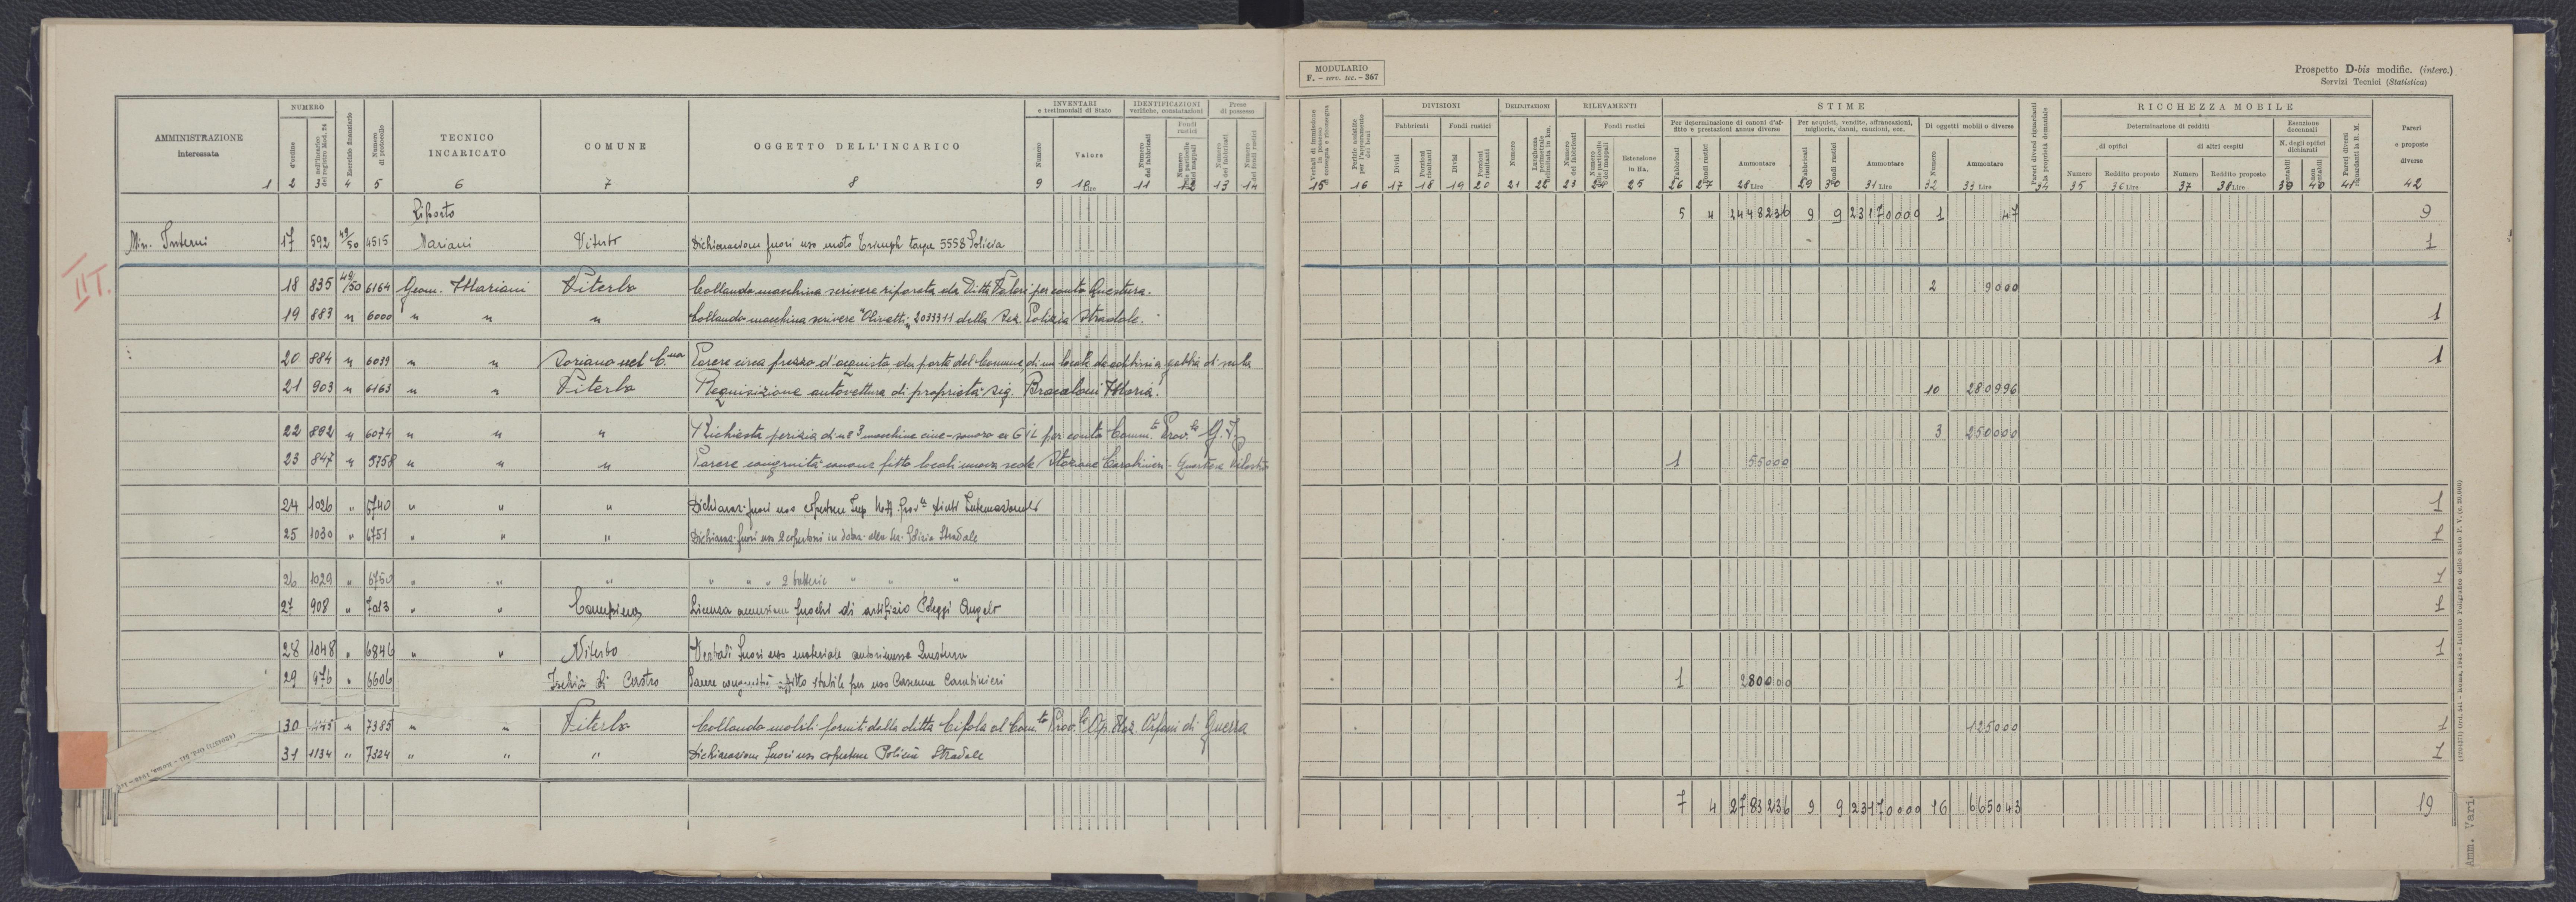 MODULARIO
F. - serv. tec. - 367
Prospetto D-bis modific. (interc.)
Servizi Tecnici (Statistica)
AMMINISTRAZIONE interessata
NUMERO
d'ordine
dell'incarico del registro Mod. 24
Esercizio finanziario
Numero di protocollo
TECNICO INCARICATO
COMUNE
OGGETTO DELL'INCARICO
INVENTARI e testimoniali di Stato
Numero
Valore
Lire
IDENTIFICAZIONI verifiche, constatazioni
Numero dei fabbricati
Fondi rustici
Prese di possesso
Numero dei fabbricati
Numero dei fondi rustici
1 2 3 4 5 6 7 8 9 10 11 12 13 14
Verbali di immissione in possesso
Perizie assistite per l'appuramento dei beni
DIVISIONI
Fabbricati
Fondi rustici
Divisi
Porzioni risultanti
Divisi
Porzioni risultanti
DELIMITAZIONI
Numero
Lunghezza perimetrale delimitata in km.
RILEVAMENTI
Numero dei fabbricati
Fondi rustici
Estensione in Ha.
STIME
Per determinazione di canoni d'affitto e prestazioni annue diverse
Fabbricati
Fondi rustici
Ammontare
Lire
Per acquisti, vendite, affrancazioni, migliorie, danni, cauzioni, ecc.
Fabbricati
Fondi rustici
Ammontare
Lire
Di oggetti mobili o diverse
Numero
Ammontare
Lire
Pareri diversi riguardanti la proprietà demaniale
RICCHEZZA MOBILE
Determinazione di redditi
di opifici
Numero
Reddito proposto
Lire
di altri cespiti
Numero
Reddito proposto
Lire
Esenzione decennali
N. degli opifici dichiarati
Pareri diversi riguardanti la R. M.
Pareri e proposte diverse
15 16 17 18 19 20 21 22 23 24 25 26 27 28 29 30 31 32 33 34 35 36 37 38 39 40 41 42
Riporto 5 4 2448236 9 9 23170000 1 47 9
Min. Interni 17 592 49/50 4515 Mariani Viterbo Dichiarazione fuori uso moto Triumph targa 5558 Polizia 1
II T.
18 835 49/50 6164 Geom. Mariani Viterbo Collaudo macchina scrivere riparata da Ditta Valeri per conto Questura. 2 9000
19 883 " 6000 " " " Collaudo macchina scrivere "Olivetti" 2033311 della Sez. Polizia Stradale. 1
20 884 " 6039 " " Soriano nel C.no Parere circa prezzo d'acquisto da parte del Comune, di un locale da adibirsi a gabbia di 1
21 903 " 6163 " " Viterbo Requisizione autovettura di proprietà sig. Maria. 10 280996
22 892 " 6074 " " " Richiesta perizia di n° 3 macchine cine-sonoro ex GIL per conto Comm.to Prov.le G. I. 3 250000
23 847 " 5758 " " " Parere congruità canone fitto locali nuova sede Stazione Carabinieri - Quartiere Pilastro 1 55000
24 1026 " 6740 " " " Dichiaraz. fuori uso Prov.le 1
25 1030 " 6751 " " " Dichiaraz. fuori uso 2 copertoni in dotaz. alla Sez. Polizia Stradale 1
26 1029 " 6750 " " " " " " 2 batterie " " " 1
27 908 " 7013 " " Licenza accensione fuochi di artifizio Poleggi Angelo 1
28 1048 " 6846 " " Viterbo Verbali fuori uso materiale autorimessa Questura 1
29 976 " 6606 Ischia di Castro Parere congruità affitto stabile per uso Caserma Carabinieri 1 280000
30 1145 " 7385 " " Viterbo Collaudo mobili forniti dalla ditta Cifola al Com.to Prov.le Orfani di Guerra 125000 1
31 1134 " 7324 " " " Dichiarazione fuori uso coperture Polizia Stradale 1
7 4 2783236 9 9 23170000 16 665043 19
Ord. 541 - Roma, 1948 - Istituto Poligrafico dello Stato P. V. (c. 20.000)
Amm. Vari.